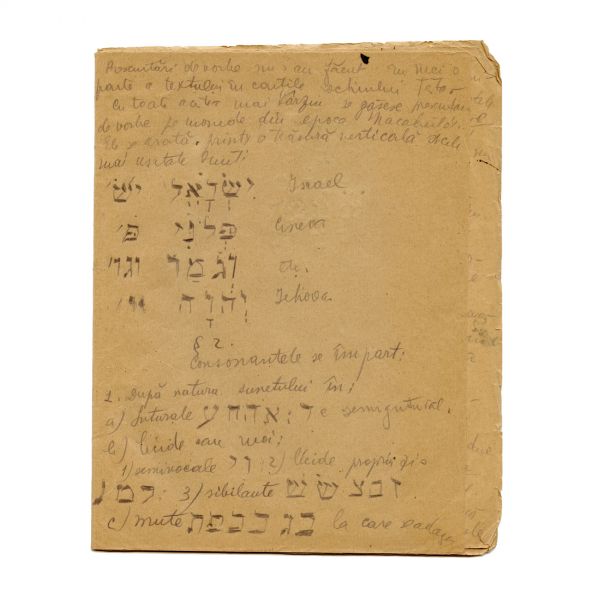 Prescurtări de vorbe nu s'au făcut în nici o
parte a textului în cărțile Vechiului Testam.
Cu toate acestea mai târziu se găsesc prescurtări
de vorbe pe monede din epoca Macabeilor.
Ele se arată printr'o trăsură verticală. Cele
mai usitate sunt:
יִשְׂרָאֵל יש׳ Israel
פְּלֹנִי פ׳ Cineva
וְגֹמַר וגו׳ etc.
יְהֹוָה יי׳ Iehova.
§ 2.
Consonantele se împart:
1. După natura sunetului în:
a) guturale א ה ח ע ; ר e semigutural.
b) licide sau moi:
1) semivocale ו י 2) licide propriu zis
ל מ נ ; 3) sibilante ז ס צ שׂ שׁ
c) mute ב ג ד כ פ ת la care se adaug